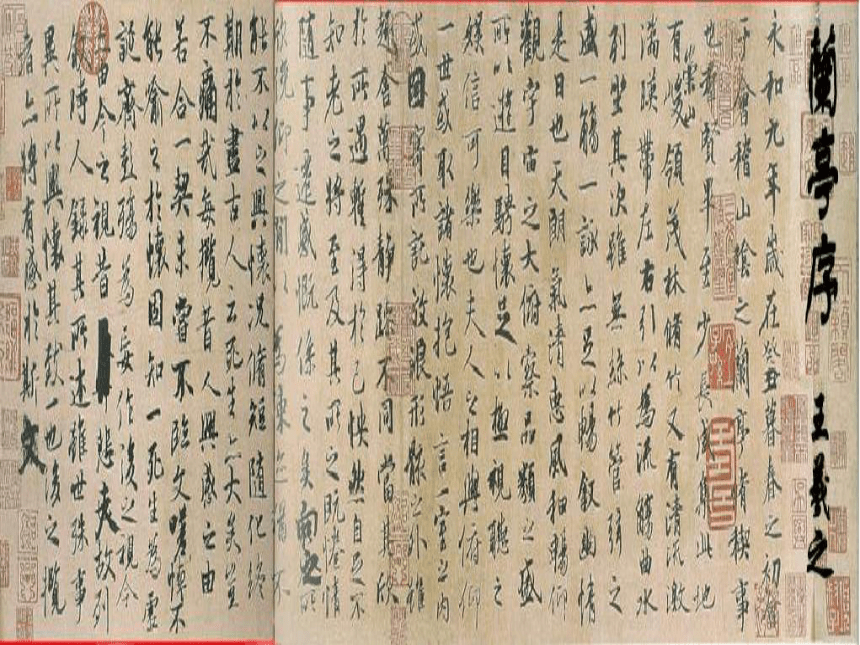 蘭亭序 王羲之
永和九年歲在癸丑暮春之初會
于會稽山陰之蘭亭脩稧事
也羣賢畢至少長咸集此地
有崇山峻領茂林脩竹又有清流激
湍暎帶左右引以為流觴曲水
列坐其次雖無絲竹管弦之
盛一觴一詠亦足以暢敘幽情
是日也天朗氣清惠風和暢仰
觀宇宙之大俯察品類之盛
所以遊目騁懷足以極視聽之
娛信可樂也夫人之相與俯仰
一世或取諸懷抱悟言一室之內
或因寄所託放浪形骸之外雖
趣舍萬殊靜躁不同當其欣
於所遇蹔得於己怏然自足不
知老之將至及其所之既惓情
隨事遷感慨係之矣向之所
欣俛仰之閒以為陳迹猶不
能不以之興懷況脩短隨化終
期於盡古人云死生亦大矣豈
不痛哉每攬昔人興感之由
若合一契未嘗不臨文嗟悼不
能喻之於懷固知一死生為虛
誕齊彭殤為妄作後之視今
亦由今之視昔悲夫故列
敘時人錄其所述雖世殊事
異所以興懷其致一也後之攬
者亦將有感於斯文